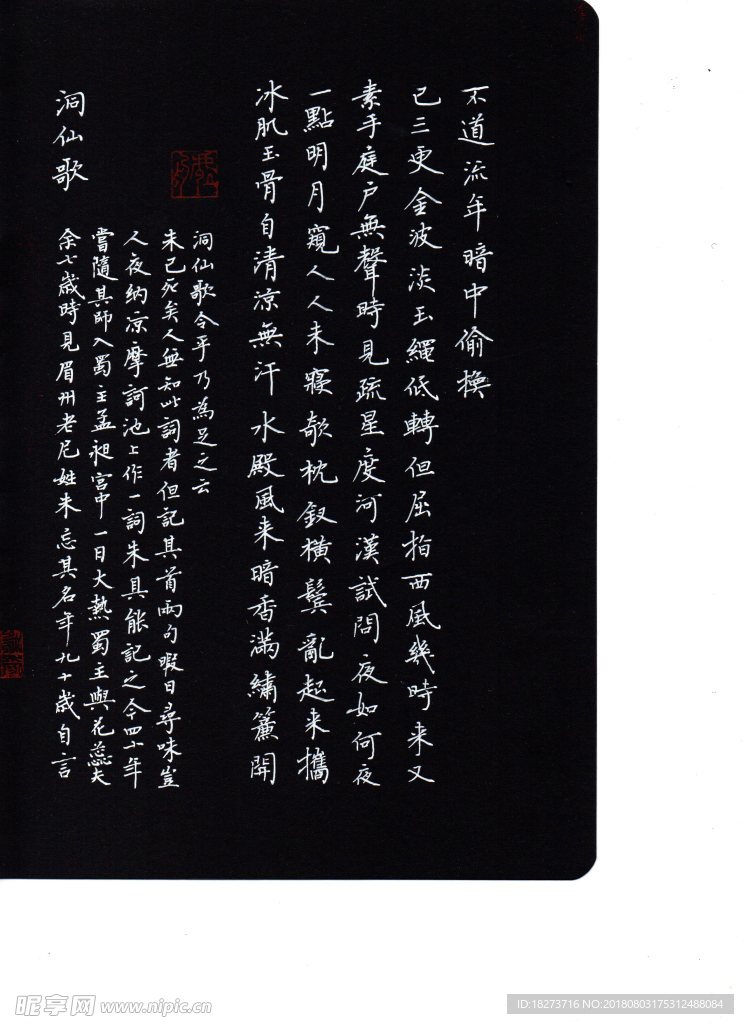 洞仙歌
余七歲時見眉州老尼姓朱忘其名年九十歲自言
嘗隨其師入蜀主孟昶宮中一日大熱蜀主與花蕊夫
人夜納凉摩訶池上作一詞朱具能記之今四十年
朱已死矣人無知此詞者但記其首兩句暇日尋味豈
洞仙歌令乎乃為足之云
冰肌玉骨自清涼無汗水殿風来暗香滿繡簾開
一點明月窺人人未寢欹枕釵橫鬢亂起来攜
素手庭户無聲時見疏星度河漢試問夜如何夜
已三更金波淡玉繩低轉但屈指西風幾時来又
不道流年暗中偷換
昵享网 www.nipic.cn
ID:18273716 NO:20180803175312488084